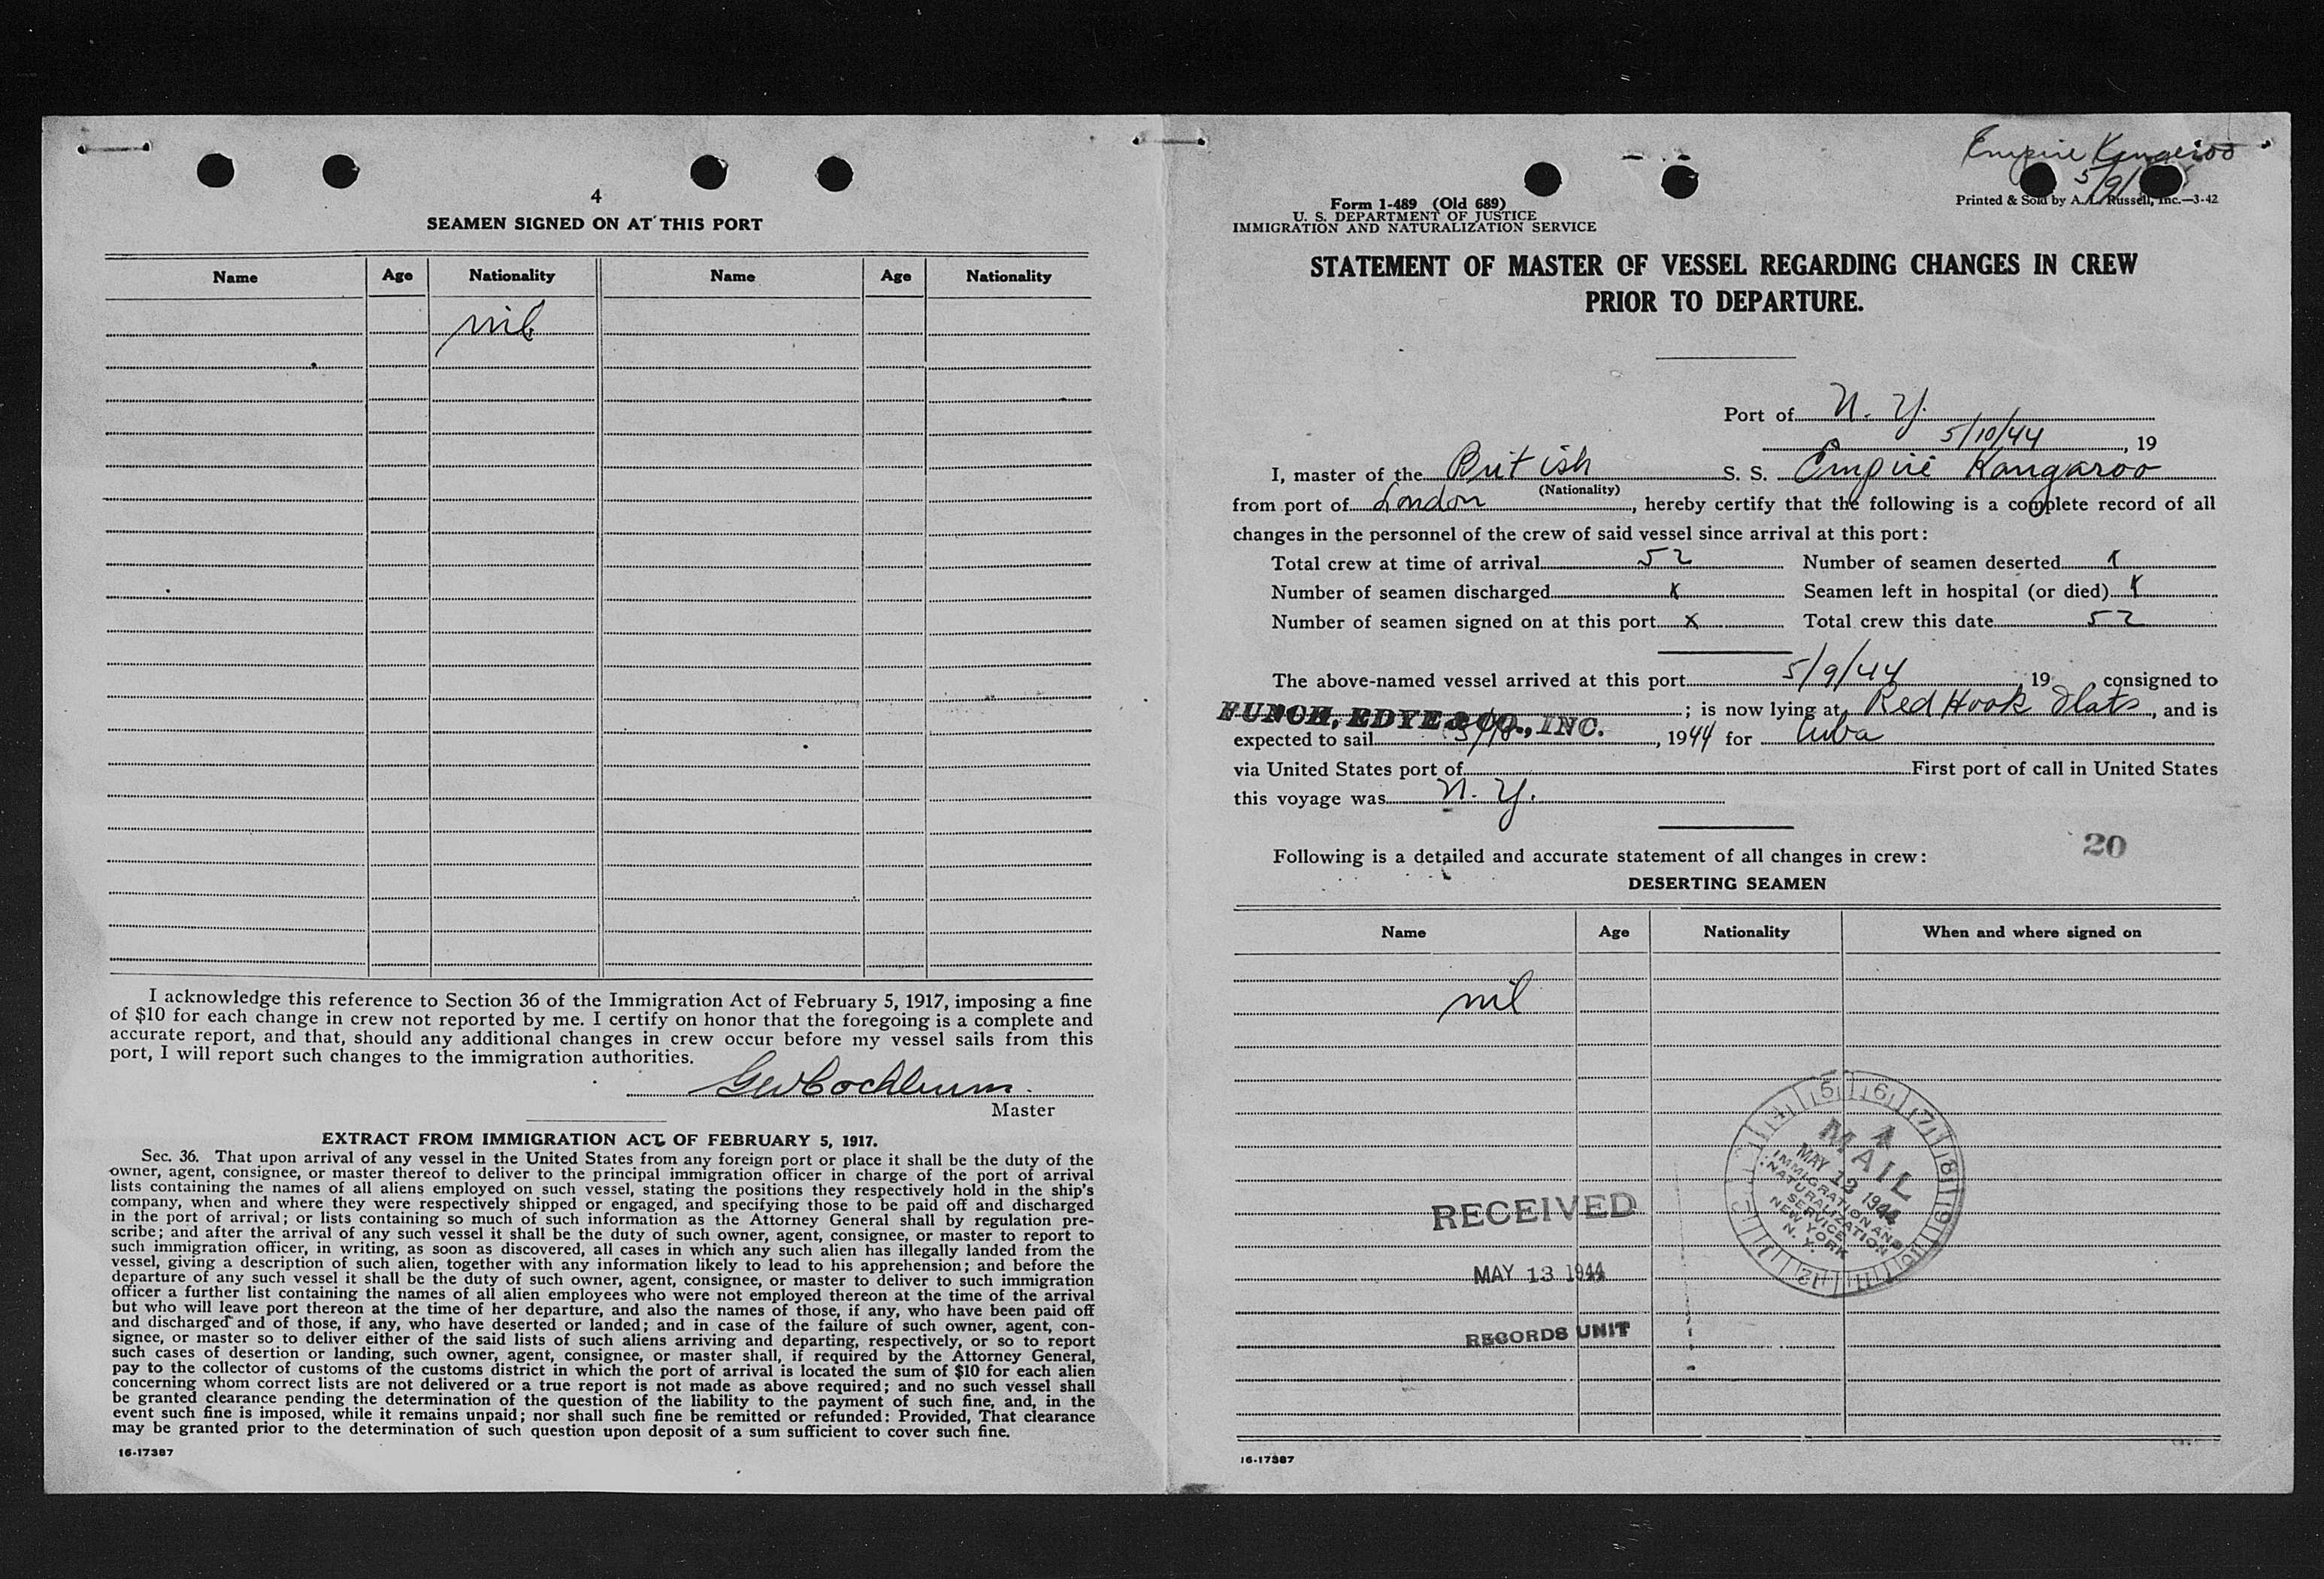 4
SEAMEN SIGNED ON AT THIS PORT
Name Age Nationality Name Age Nationality
nil
I acknowledge this reference to Section 36 of the Immigration Act of February 5, 1917, imposing a fine
of $10 for each change in crew not reported by me. I certify on honor that the foregoing is a complete and
accurate report, and that, should any additional changes in crew occur before my vessel sails from this
port, I will report such changes to the immigration authorities.
Master
EXTRACT FROM IMMIGRATION ACT OF FEBRUARY 5, 1917.
Sec. 36. That upon arrival of any vessel in the United States from any foreign port or place it shall be the duty of the
owner, agent, consignee, or master thereof to deliver to the principal immigration officer in charge of the port of arrival
lists containing the names of all aliens employed on such vessel, stating the positions they respectively hold in the ship's
company, when and where they were respectively shipped or engaged, and specifying those to be paid off and discharged
in the port of arrival; or lists containing so much of such information as the Attorney General shall by regulation pre-
scribe; and after the arrival of any such vessel it shall be the duty of such owner, agent, consignee, or master to report to
such immigration officer, in writing, as soon as discovered, all cases in which any such alien has illegally landed from the
vessel, giving a description of such alien, together with any information likely to lead to his apprehension; and before the
departure of any such vessel it shall be the duty of such owner, agent, consignee, or master to deliver to such immigration
officer a further list containing the names of all alien employees who were not employed thereon at the time of the arrival
but who will leave port thereon at the time of her departure, and also the names of those, if any, who have been paid off
and discharged and of those, if any, who have deserted or landed; and in case of the failure of such owner, agent, con-
signee, or master so to deliver either of the said lists of such aliens arriving and departing, respectively, or so to report
such cases of desertion or landing, such owner, agent, consignee, or master shall, if required by the Attorney General,
pay to the collector of customs of the customs district in which the port of arrival is located the sum of $10 for each alien
concerning whom correct lists are not delivered or a true report is not made as above required; and no such vessel shall
be granted clearance pending the determination of the question of the liability to the payment of such fine, and, in the
event such fine is imposed, while it remains unpaid; nor shall such fine be remitted or refunded: Provided, That clearance
may be granted prior to the determination of such question upon deposit of a sum sufficient to cover such fine.
16-17387
Empire Kangaroo
5/9/
Printed & Sold by A. L. Russell, Inc.—3-42
Form 1-489 (Old 689)
U. S. DEPARTMENT OF JUSTICE
IMMIGRATION AND NATURALIZATION SERVICE
STATEMENT OF MASTER OF VESSEL REGARDING CHANGES IN CREW
PRIOR TO DEPARTURE.
Port of N. Y.
5/10/44, 19
I, master of the British S. S. Empire Kangaroo
(Nationality)
from port of London, hereby certify that the following is a complete record of all
changes in the personnel of the crew of said vessel since arrival at this port:
Total crew at time of arrival 52 Number of seamen deserted x
Number of seamen discharged x Seamen left in hospital (or died) x
Number of seamen signed on at this port x Total crew this date 52
The above-named vessel arrived at this port 5/9/44, 19 consigned to
FUNCH, EDYE & CO., INC. ; is now lying at Red Hook Flats, and is
expected to sail , 1944 for Cuba
via United States port of First port of call in United States
this voyage was N. Y.
20
Following is a detailed and accurate statement of all changes in crew:
DESERTING SEAMEN
Name Age Nationality When and where signed on
nil
MAIL
MAY 12 1944
IMMIGRATION AND
NATURALIZATION
SERVICE
NEW YORK
N. Y.
RECEIVED
MAY 13 1944
RECORDS UNIT
16-17387